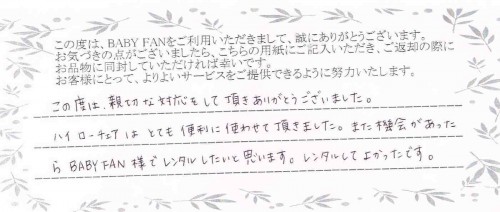 この度は、BABY FANをご利用いただきまして、誠にありがとうございます。
お気づきの点がございましたら、こちらの用紙にご記入いただき、ご返却の際に
お品物に同封していただければ幸いです。
お客様にとって、よりよいサービスをご提供できるように努力いたします。
この度は、親切な対応をして頂きありがとうございました。
ハイローチェアはとても便利に使わせて頂きました。また機会があった
らBABY FAN様でレンタルしたいと思います。レンタルしてよかったです。